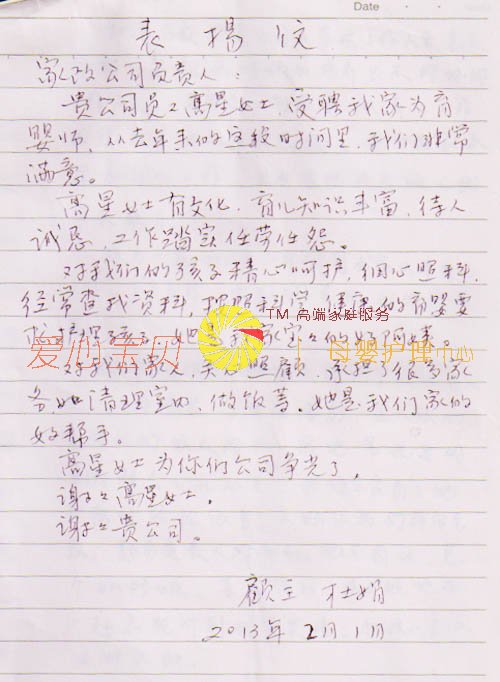 Date
表揚信
家政公司负责人：
贵公司员工高星女士，受聘我家为育
婴师，从去年来的这段时间里，我们非常
满意。
高星女士有文化，育儿知识丰富，待人
诚恳，工作踏实任劳任怨。
对我们的孩子精心呵护，细心照料，
经常查找资料，按照科学、健康的育婴要
TM 高端家庭服务
爱心宝贝 母婴护理中心
对我们家人，关心照顾，承担了很多家
务，如清理室内、做饭等。她是我们家的
好帮手。
高星女士为你们公司争光了。
谢谢高星女士。
谢谢贵公司。
顾主 杜娟
2013年2月1日